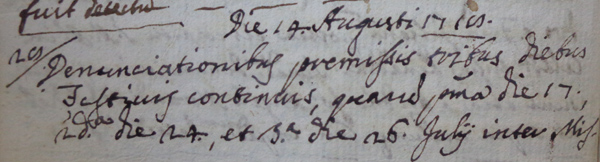 fuit detectu
Die 14. Augusti
29/ Denunciationibus premissis tribus diebus
Festiuis continuis, quarum pma die 17.,
2da. die 24., et 3.a die 26. Julij inter Mis-